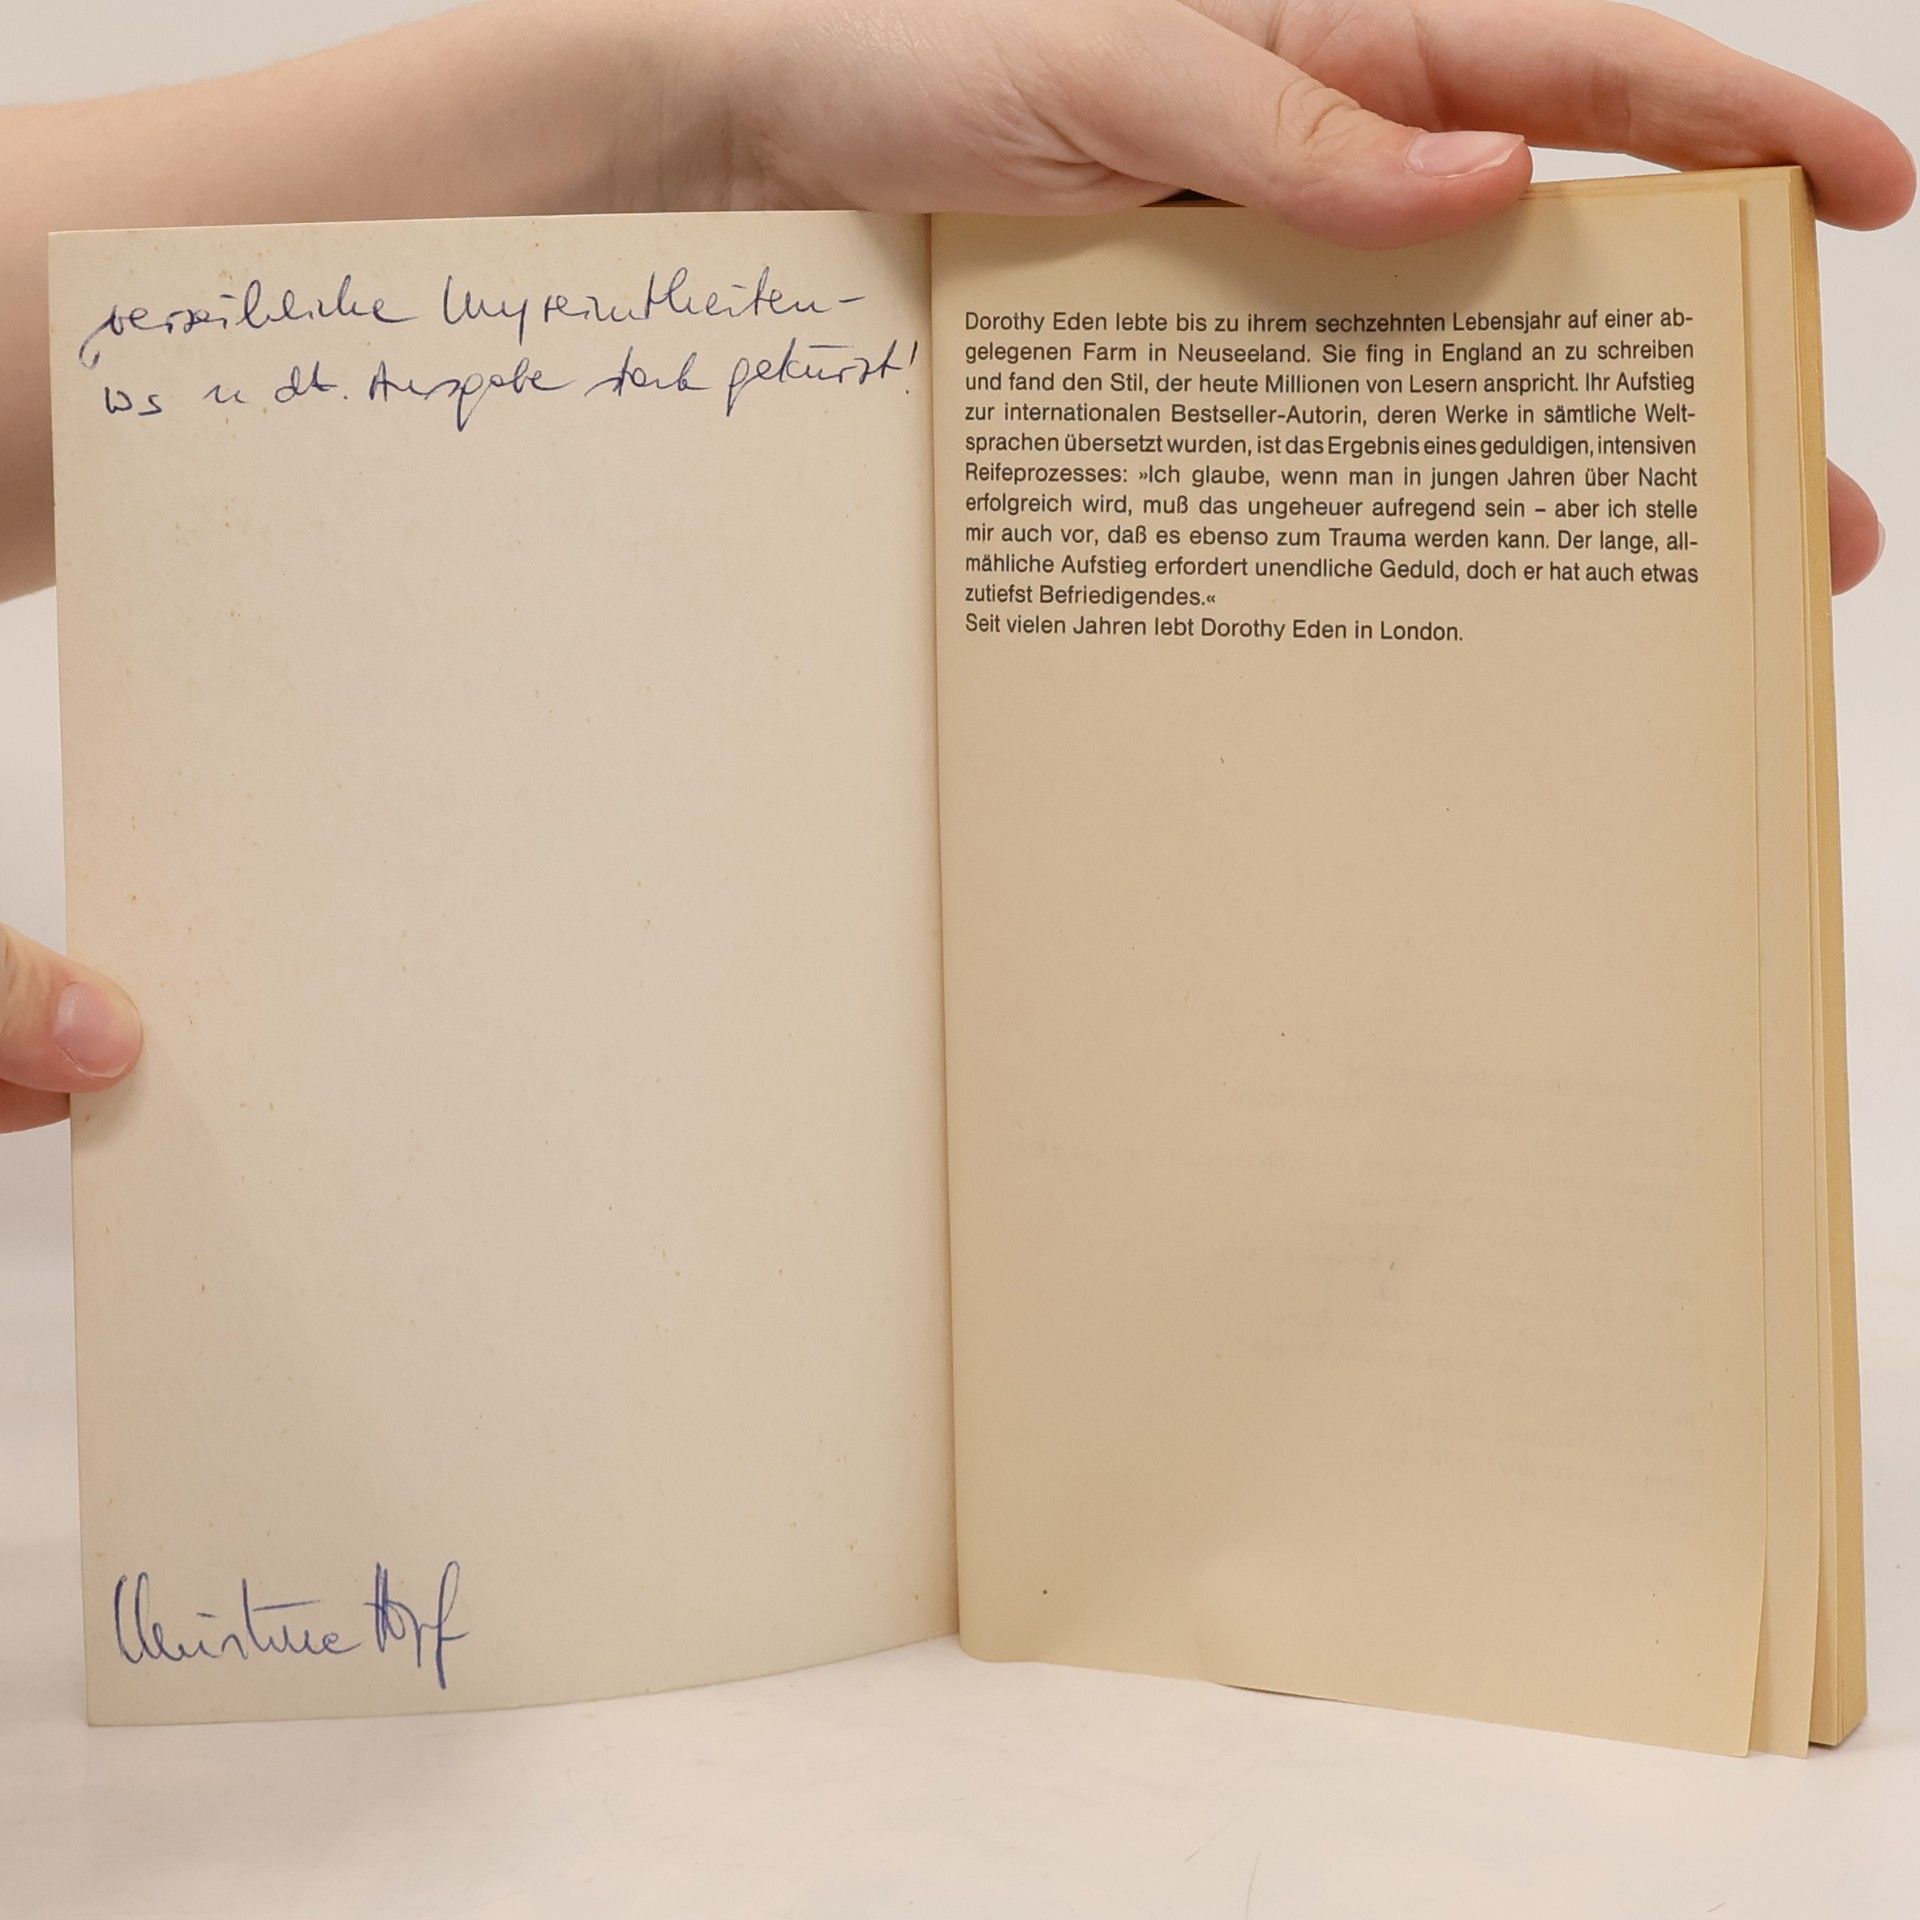 verzeihliche Ungereimtheiten –
ws in dt. Ausgabe stark gekürzt!
Christine Hopf
Dorothy Eden lebte bis zu ihrem sechzehnten Lebensjahr auf einer ab-
gelegenen Farm in Neuseeland. Sie fing in England an zu schreiben
und fand den Stil, der heute Millionen von Lesern anspricht. Ihr Aufstieg
zur internationalen Bestseller-Autorin, deren Werke in sämtliche Welt-
sprachen übersetzt wurden, ist das Ergebnis eines geduldigen, intensiven
Reifeprozesses: »Ich glaube, wenn man in jungen Jahren über Nacht
erfolgreich wird, muß das ungeheuer aufregend sein – aber ich stelle
mir auch vor, daß es ebenso zum Trauma werden kann. Der lange, all-
mähliche Aufstieg erfordert unendliche Geduld, doch er hat auch etwas
zutiefst Befriedigendes.«
Seit vielen Jahren lebt Dorothy Eden in London.